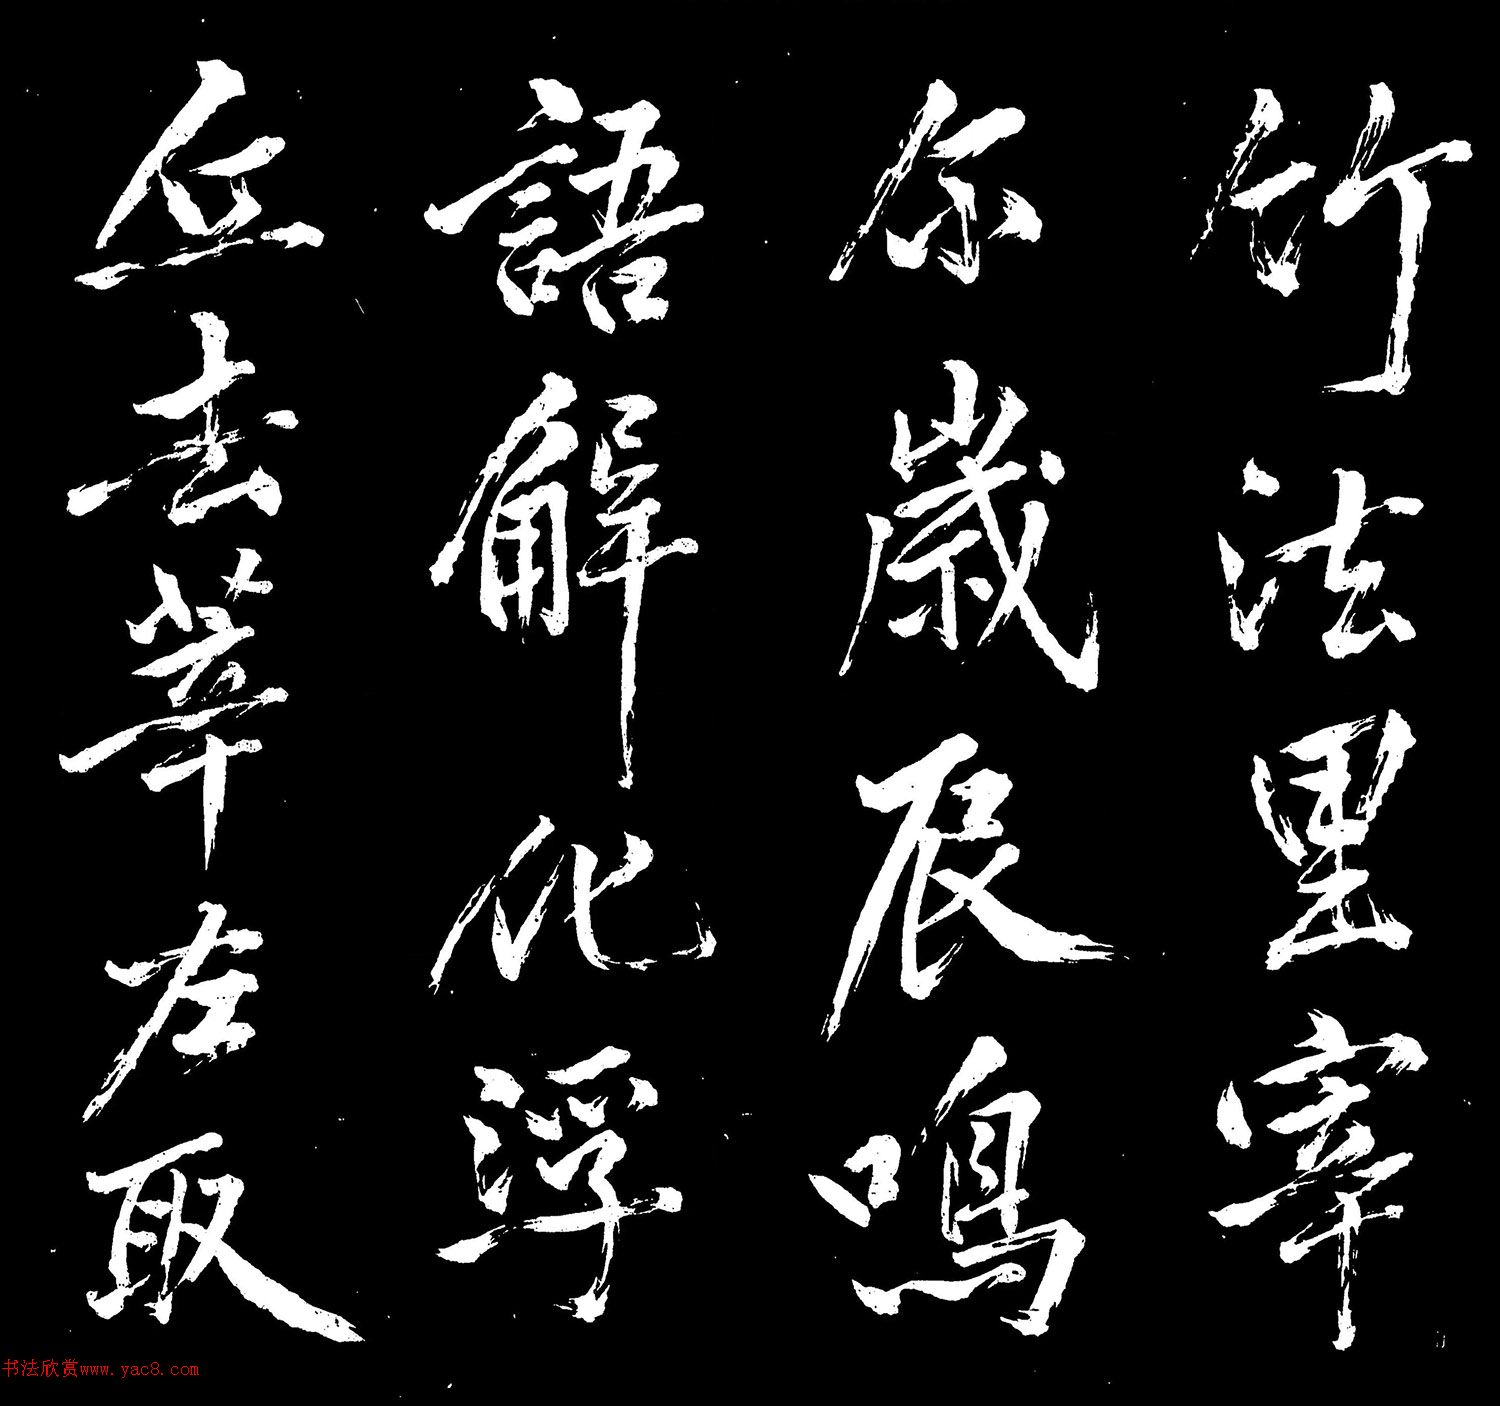 竹法里宰
尔歲辰鳴
語解化浮
丘去莘左取
书法欣赏www.yac8.com